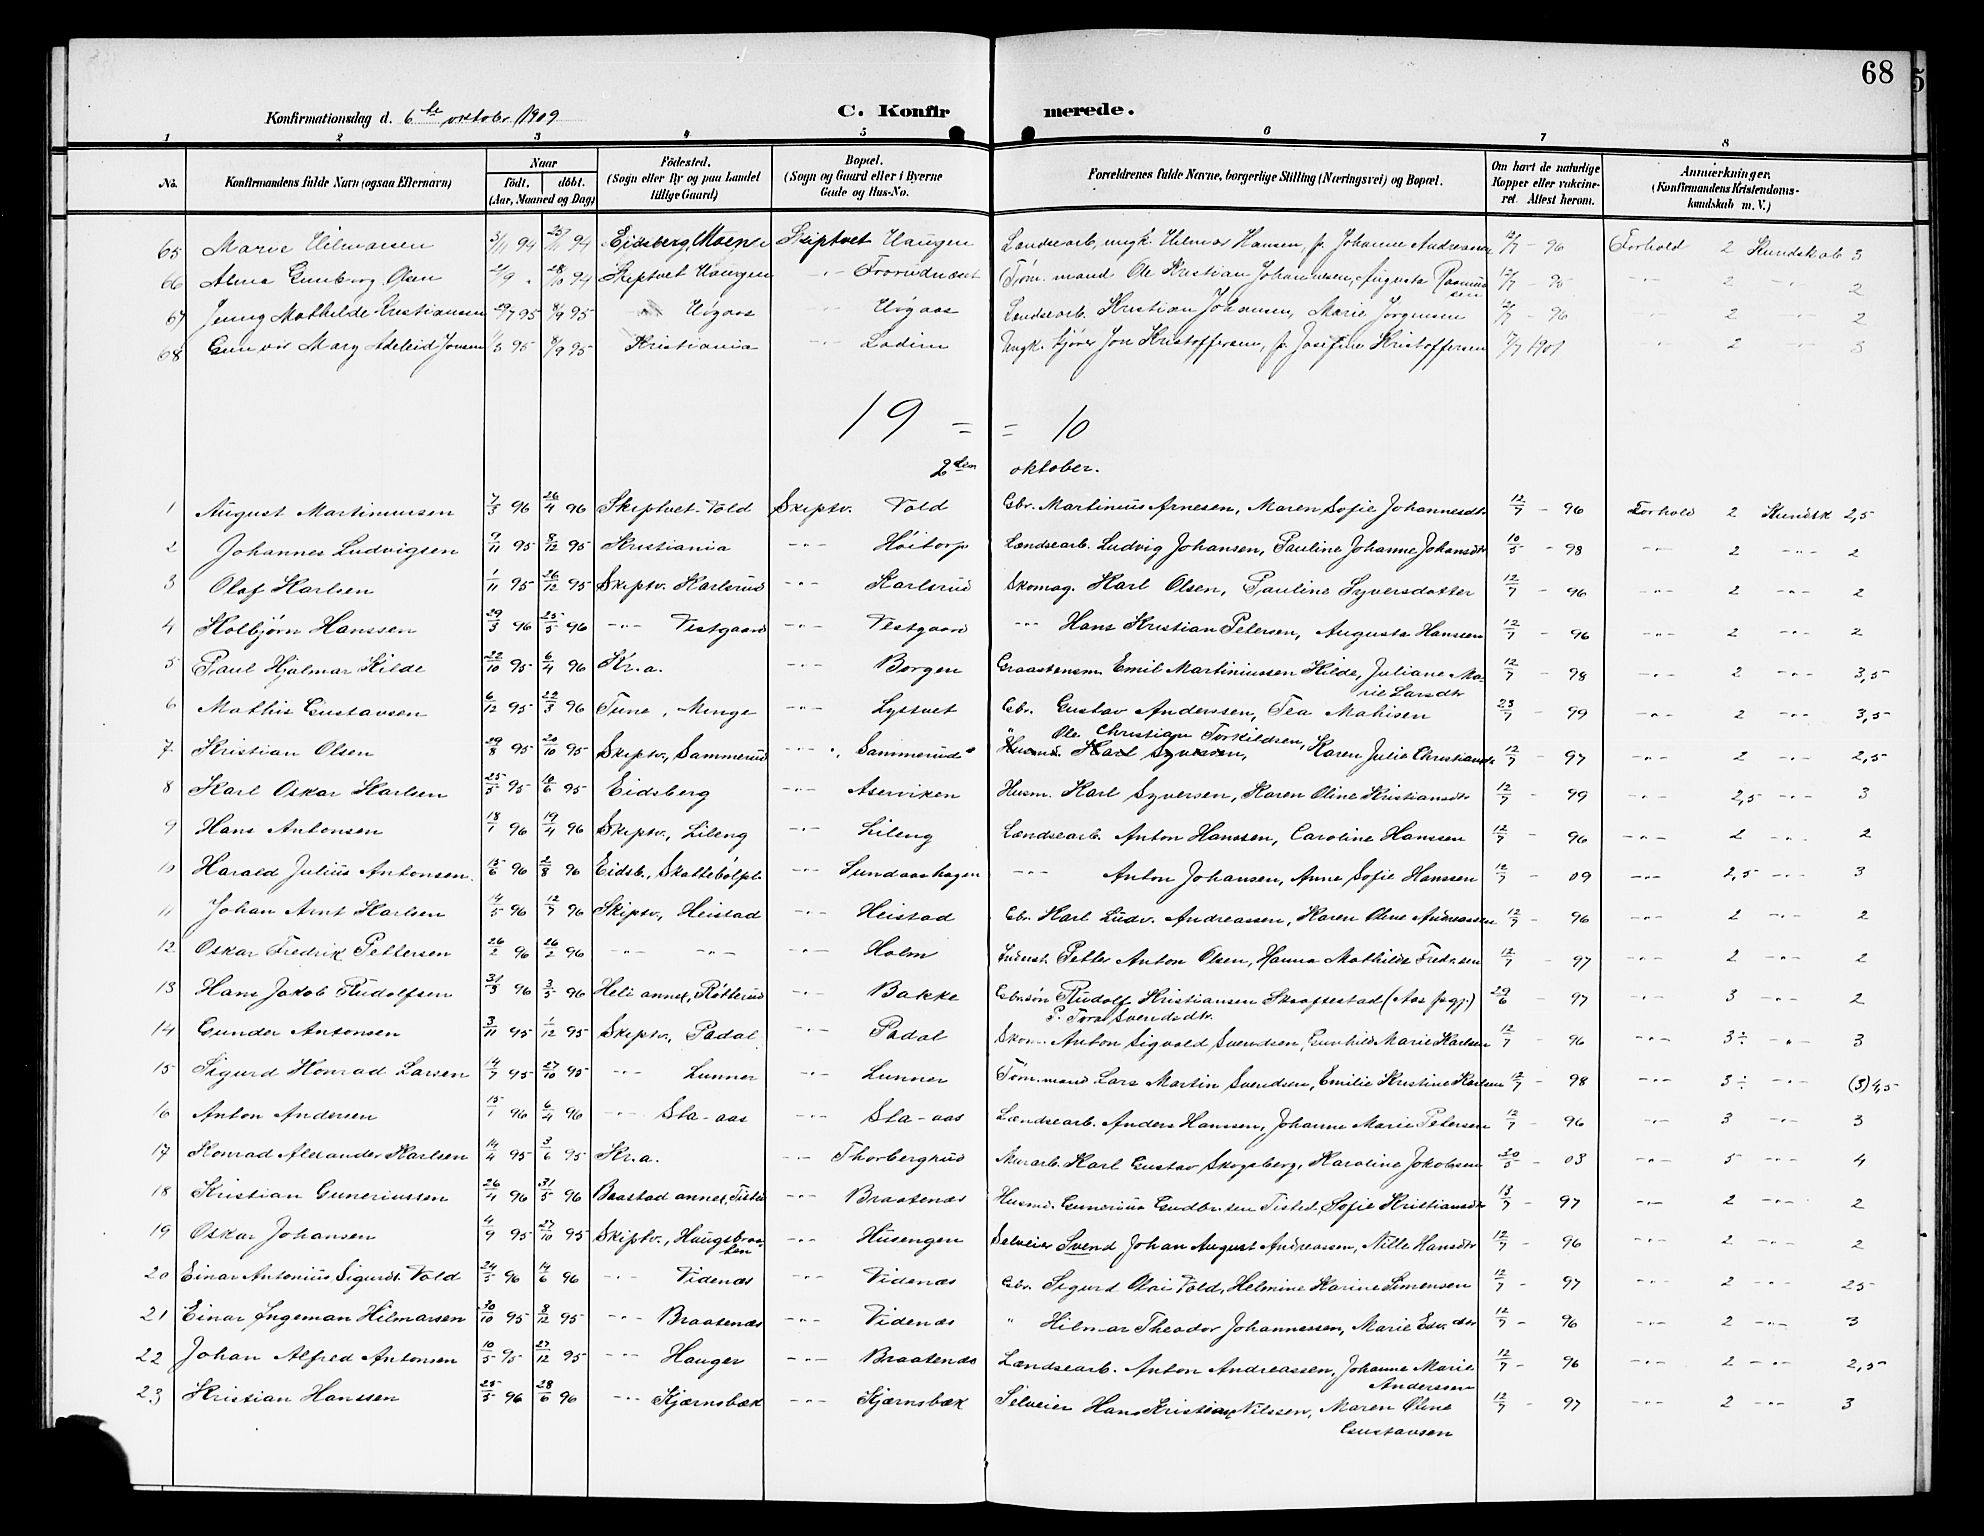 68
Konfirmationsdag d. 6te oktober 1909
C. Konfirmerede.
1 2 3 4 5 6 7 8
No. Konfirmandens fulde Navn (ogsaa Efternavn) Naar født. døbt. (Aar, Maaned og Dag) Födested. (Sogn eller By og paa Landet tillige Gaard) Bopæl. (Sogn og Gaard eller i Byerne Gade og Hus-No. Forældrenes fulde Navne, borgerlige Stilling (Næringsvei) og Bopæl. Om havt de naturlige Kopper eller vakcineret. Attest herom. Anmærkninger. (Konfirmandens Kristendomskundskab m. V.)
65 Marie Hilmarsen 3/11 94 94 Eidsberg, Moen Skiptvet Haugen Landsearb. ungk. Hilmar Hansen, p. Johanne Andreasen 12/7 - 96 Forhold 2 Kundskab 3
66 Alma Gunborg Olsen 21/9 " 28/10 94 Skiptvet Haugen -"- Tøm.mand Ole Kristian Johannesen, Augusta Rasmussen 12/7 - 95 -"- 2 -"- 2
67 Jenny Mathilde Kristiansen 29/7 95 8/9 95 -"- Uigaas -"- Uigaas Landsearb. Kristian Johansen, Marie Jørgensen 12/7 - 96 -"- 2 -"- 2
68 Gunvor Mary Adeleid Jonsen 1/3 95 8/9 95 Kristiania -"- Lodim Ungk. kjører Jon Kristoffersen, p. Josefine Kristoffersen 1901 -"- 2 -"- 3
19 = = 10
2den oktober.
1 August Martiniussen 7/3 96 26/4 96 Skiptvet Vold Skiptv. Vold Gbr. Martinius Arnesen, Maren Sofie Johannesdtr 12/7 - 96 Forhold 2 Kundsk 2,5
2 Johannes Ludvigsen 9/11 95 8/12 95 Kristiania -"- Høitorp Lændsearb. Ludvig Johansen, Pauline Johanne Johansdtr 10/5 - 98 -"- 2 -"- 2
3 Olaf Karlsen 1/11 95 26/12 95 Skiptv. Karlsrud -"- Karlsrud Skomag. Karl Olsen, Pauline Syversdatter 12/7 - 96 -"- 2 -"- 2
4 Kolbjørn Hanssen 29/3 96 25/5 96 -"- Vestgaard -"- Vestgaard -"- Hans Kristian Petersen, Augusta Hanssen 12/7 - 96 -"- 2 -"- 2
5 Paul Hjalmar Kilde 22/10 95 6/4 96 Kr.a. -"- Borgen Graastensm. Emil Martiniussen Kilde, Juliane Marie Larsdtr 12/7 - 98 -"- 2 -"- 3,5
6 Mathis Gustavsen 6/12 95 22/3 96 Tune, Minge -"- Lystvet Gbr. Gustav Anderssen, Tea Mathisen 23/7 - 99 -"- 2 -"- 3,5
7 Kristian Olsen 29/8 95 20/10 95 Skiptv., Sammerud -"- Sammerud " Ole Christian Torkildsen, Husmd. Karl Syversen, Karen Julie Christiansdtr 12/7 - 97 -"- 2 -"- 2,5
8 Karl Oskar Karlsen 25/5 95 16/6 95 Eidsberg -"- Aserviken Husm. Karl Syversen, Karen Oline Kristiansdtr 12/7 - 99 -"- 2,5 -"- 3
9 Hans Antonsen 18/1 96 19/4 96 Skiptv., Lileng -"- Lileng Lændsearb. Anton Hanssen, Caroline Hanssen 12/7 - 96 -"- 2 -"- 2
10 Harald Julius Antonsen 15/6 96 2/8 96 Eidsb., Skattebølpl. -"- Sundaashagen -"- Anton Johansen, Anne Sofie Hanssen 12/7 - 09 -"- 2,5 -"- 3
11 Johan Arnt Karlsen 14/5 96 12/7 96 Skiptv., Heistad -"- Heistad Gbr. Karl Ludv. Andreassen, Karen Oline Andreassen 12/7 - 96 -"- 2 -"- 2
12 Oskar Fredrik Pettersen 26/2 96 26/2 96 -"- -"- -"- Holm Inderst. Petter Anton Olsen, Hanna Mathilde Fredriksen 12/7 - 97 -"- 2 -"- 2
13 Hans Jakob Rudolfsen 31/3 96 3/5 96 Heli annex, Røtterud -"- Bakke Gbrsøn Rudolf Kristiansen Skoftestad (Aas prgj.) P. Tora Svendsdtr. 29/6 - 97 -"- 3 -"- 2
14 Gunder Antonsen 3/11 95 1/12 95 Skiptv., Padal -"- Padal Skom. Anton Sigvald Svendsen, Gunhild Marie Karlsen 12/7 - 96 -"- 3÷ -"- 3
15 Sigurd Konrad Larsen 14/7 95 27/10 95 -"- Lunner -"- Lunner Tøm.mand Lars Martin Svendsen, Emilie Kristine Karlsen 12/7 - 98 -"- 3÷ -"- (3) 4,5
16 Anton Andersen 15/1 96 6/4 96 -"- Sta-aas -"- Sta-aas Lændsearb. Anders Hanssen, Johanne Marie Petersen 12/7 - 96 -"- 3 -"- 3
17 Konrad Alexander Karlsen 14/4 95 3/6 95 Kr.a. -"- Thorbergrud Murarb. Karl Gustav Skogsberg, Karoline Jakobsen 20/5 - 03 -"- 5 -"- 4
18 Kristian Guneriussen 26/4 96 31/5 96 Baastad annex, Tisted -"- Braatenæs Husmd. Gunerius Gudbrsen Tisted, Sofie Kristiansdtr 13/7 - 97 -"- 2 -"- 2
19 Oskar Johansen 4/9 95 27/10 95 Skiptv., Haugsbraaten -"- Husengen Selveier Svend Johan August Andreassen, Nille Hansdtr 12/7 - 96 -"- 2 -"- 2
20 Einar Antonius Sigurds. Vold 24/3 96 14/6 96 -"- Videnæs -"- Videnæs Gbr. Sigurd Olai Vold, Helmine Karine Simensen 12/7 - 97 -"- 2 -"- 25
21 Einar Ingeman Hilmarsen 30/10 95 8/12 95 -"- Braatenæs -"- Videnæs " Hilmar Theodor Johannessen, Marie Edv.dtr 12/7 - 96 -"- 2 -"- 3
22 Johan Alfred Antonsen 10/5 95 27/12 95 -"- Hauger -"- Braatenæs Lændsearb. Anton Andreassen, Johanne Marie Anderssen 12/7 - 96 -"- 2 -"- 2,5
23 Kristian Hanssen 25/5 96 28/6 96 -"- Kjærnsbæk -"- Kjærnsbæk Selveier Hans Kristian Nilssen, Maren Oline Gustavsen 12/7 - 97 -"- 2 -"- 3